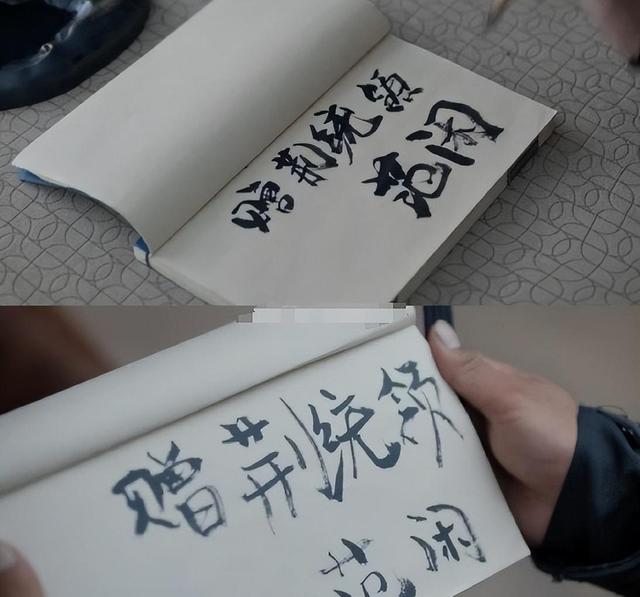 赠荆统领
范闲
赠荆统领
范闲